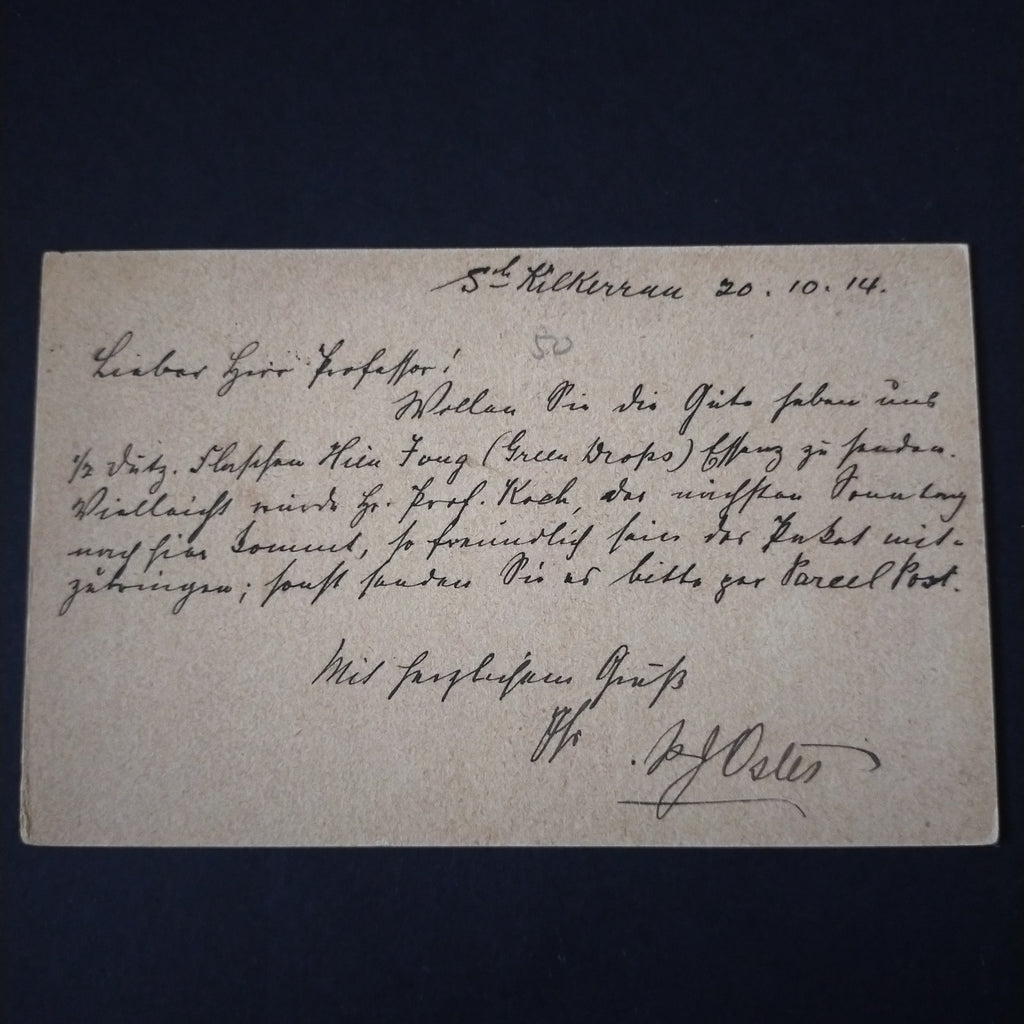 Sth Kilkerran 20.10.14.
50
Lieber Herr Professor!
Wollen Sie die Güte haben uns
1/2 Dutz. Flaschen Hien Fong (Green Drops) Essenz zu senden.
Vielleicht würde Hr. Prof. Koch, der nächsten Sonntag
nach hier kommt, so freundlich sein das Paket mit-
zubringen; sonst senden Sie es bitte per Parcel Post.
Mit herzlichem Gruß
Ihr
J Oster